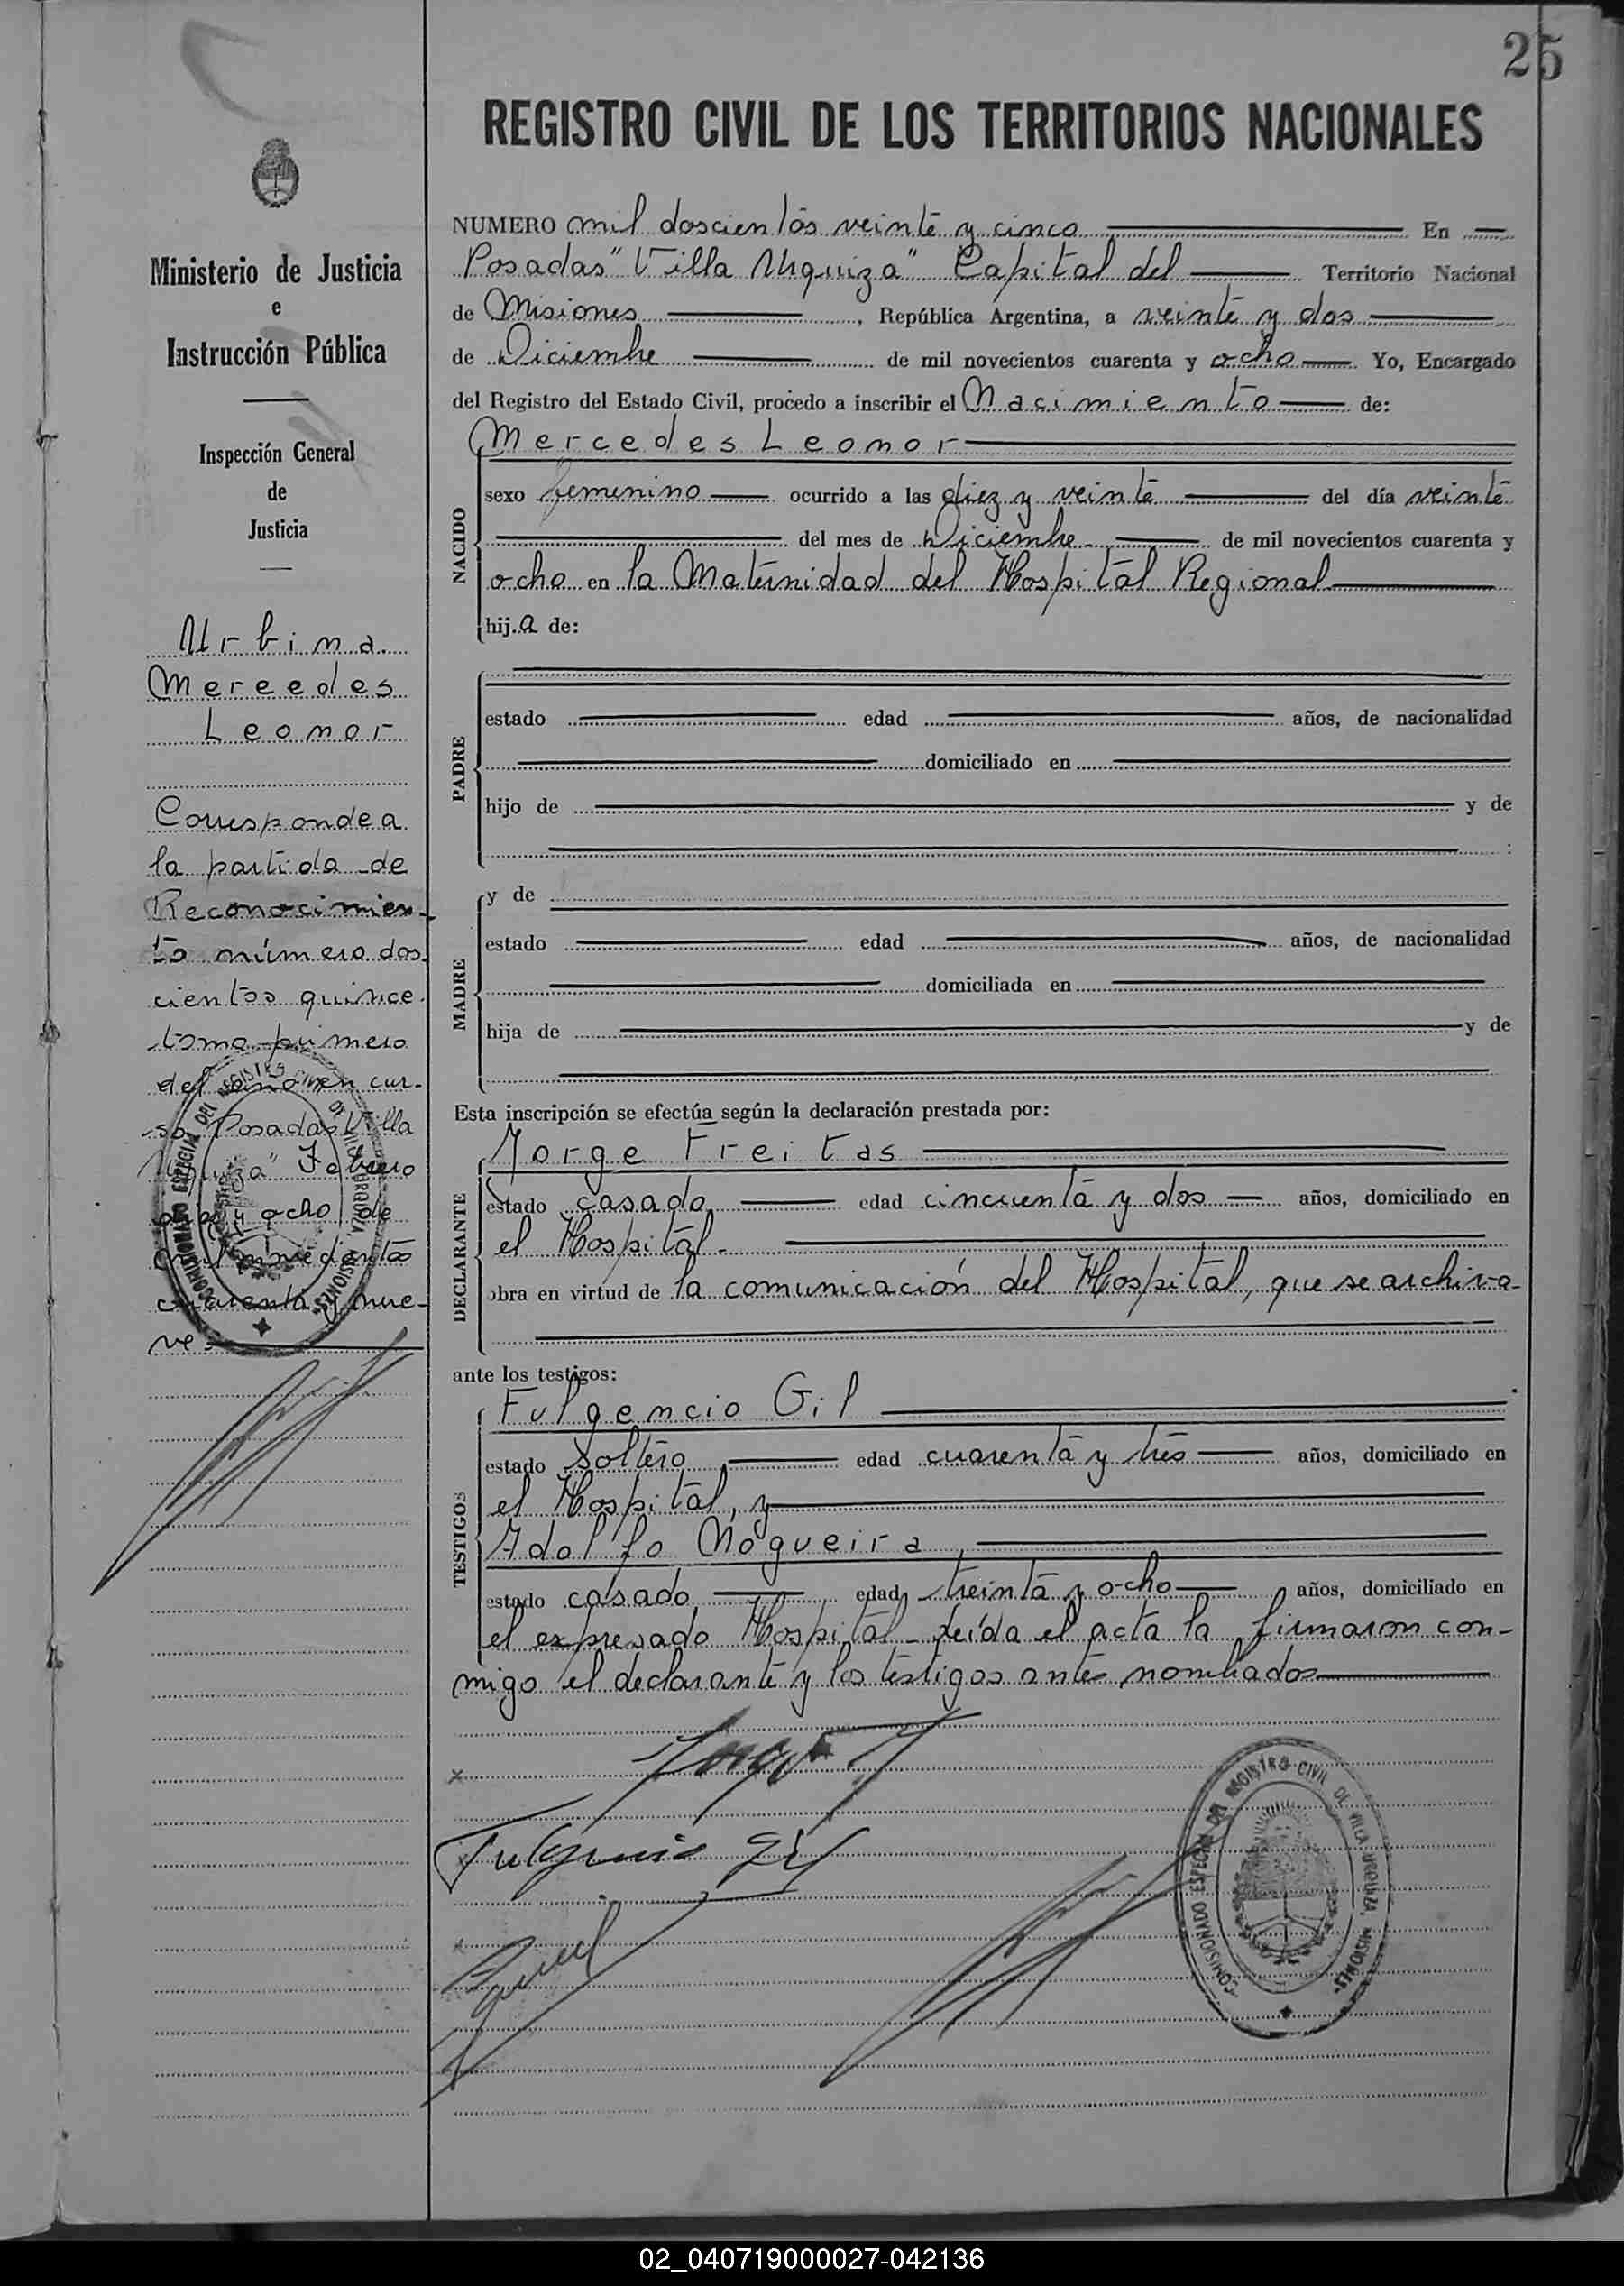 25
REGISTRO CIVIL DE LOS TERRITORIOS NACIONALES
Ministerio de Justicia
e
Instrucción Pública
Inspección General
de
Justicia
Urbina
Mercedes
Leonor
Corresponde a
la partida de
Reconocimien-
to número dos-
cientos quince
tomo primero
del año en cur-
so Posadas "Villa
Urquiza" Febrero
y ocho de
mil novecientos
cuarenta y nue-
ve
COMISIONADO ESPECIAL DEL REGISTRO CIVIL DE VILLA URQUIZA MISIONES
NUMERO mil doscientos veinte y cinco En
Posadas "Villa Urquiza" Capital del Territorio Nacional
de Misiones , República Argentina, a veinte y dos
de Diciembre de mil novecientos cuarenta y ocho Yo, Encargado
del Registro del Estado Civil, procedo a inscribir el Nacimiento de:
Mercedes Leonor
NACIDO
sexo femenino ocurrido a las diez y veinte del día veinte
del mes de Diciembre de mil novecientos cuarenta y
ocho en la Maternidad del Hospital Regional
hij a de:
PADRE
estado edad años, de nacionalidad
domiciliado en
hijo de y de
:
MADRE
y de
estado edad años, de nacionalidad
domiciliada en
hija de y de
Esta inscripción se efectúa según la declaración prestada por:
DECLARANTE
Jorge Freitas
estado casado edad cincuenta y dos años, domiciliado en
el Hospital.
obra en virtud de la comunicación del Hospital, que se archiva
ante los testigos:
TESTIGOS
Fulgencio Gil
estado Soltero edad cuarenta y tres años, domiciliado en
el Hospital, y
Adolfo Nogueira
estado casado edad treinta y ocho años, domiciliado en
el expresado Hospital - Leída el acta la firmaron con-
migo el declarante y los testigos antes nombrados
Jorge F
Fulgencio Gil
COMISIONADO ESPECIAL DEL REGISTRO CIVIL DE VILLA URQUIZA, MISIONES
02_040719000027-042136